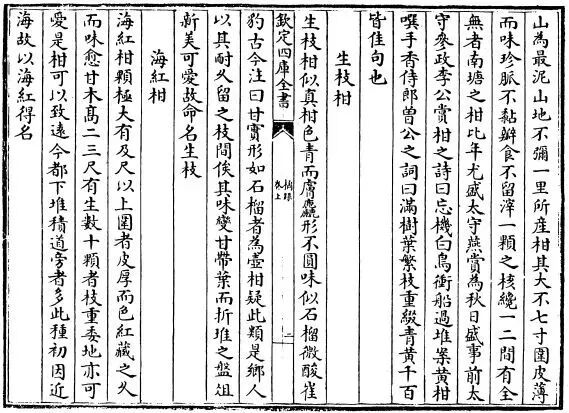 山為最泥山地不彌一里所産柑其大不七寸圍皮薄
而味珍脈不黏瓣食不留滓一顆之核纔一二間有全
無者南塘之柑比年尤盛太守燕賞為秋日盛事前太
守參政李公賞柑之詩曰忘機白鳥衝船過堆案黃柑
噀手香侍郎曾公之詞曰滿樹葉繁枝重綴青黃千百
皆佳句也
生枝柑
生枝柑似真柑色青而膚麤形不圓味似石榴微酸崔
欽定四庫全書
橘録
卷上
二
豹古今注曰甘實形如石榴者為壺柑疑此類是鄉人
以其耐乆留之枝間俟其味變甘帶葉而折堆之盤俎
新美可愛故命名生枝
海紅柑
海紅柑顆極大有及尺以上圍者皮厚而色紅藏之乆
而味愈甘木髙二三尺有生數十顆者枝重委地亦可
愛是柑可以致逺今都下堆積道旁者多此種初因近
海故以海紅得名